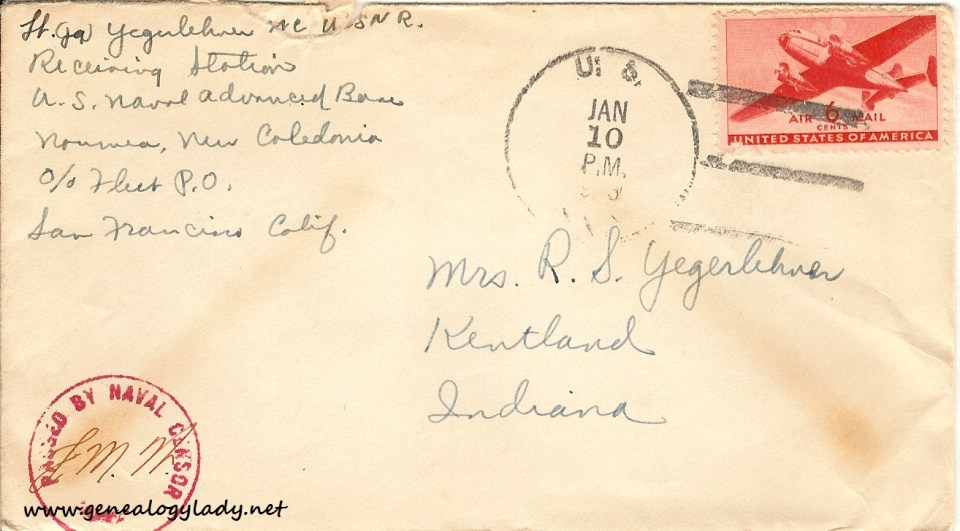 Lt. (jg) Yegerlehner MC USNR.
Receiving Station
U.S. Naval Advanced Base
Noumea, New Caledonia
c/o Fleet P.O.
San Francisco Calif.
U.
JAN
10
P.M.
AIR 6 MAIL
CENTS
UNITED STATES OF AMERICA
Mrs. R. S. Yegerlehner
Kentland
Indiana
PASSED BY NAVAL CENSOR
www.genealogylady.net